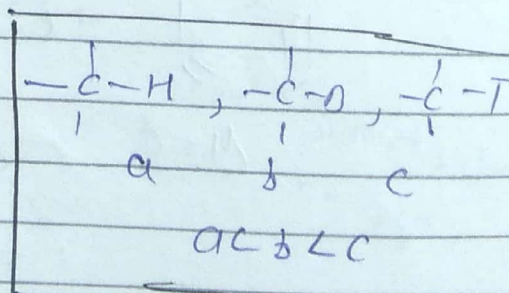 -C-H, -C-D, -C-T
a b c
a<b<c